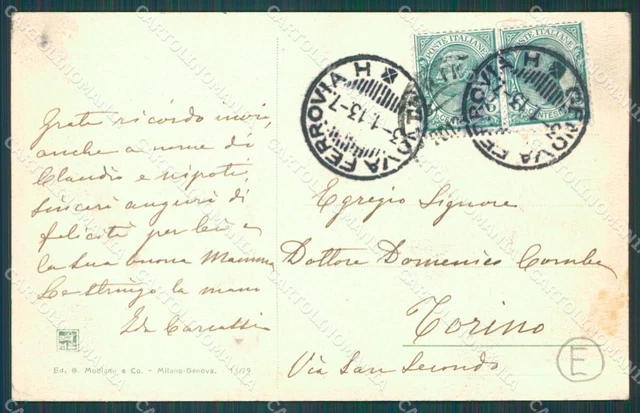 Grata ricordo invio,
anche a nome di
Claudio e nipoti,
sinceri auguri di
felicità per lei e
la sua buona Mamma
Le stringo la mano
POSTE ITALIANE
POSTE ITALIANE
GENOVA FERROVIA H
3-1-13-7
GENOVA FERROVIA H
Egregio Signore
Dottore Domenico Combe
Torino
Via San Secondo
E
Ed. G. Modiano e Co. - Milano-Genova.
CARTOLINOMANIA